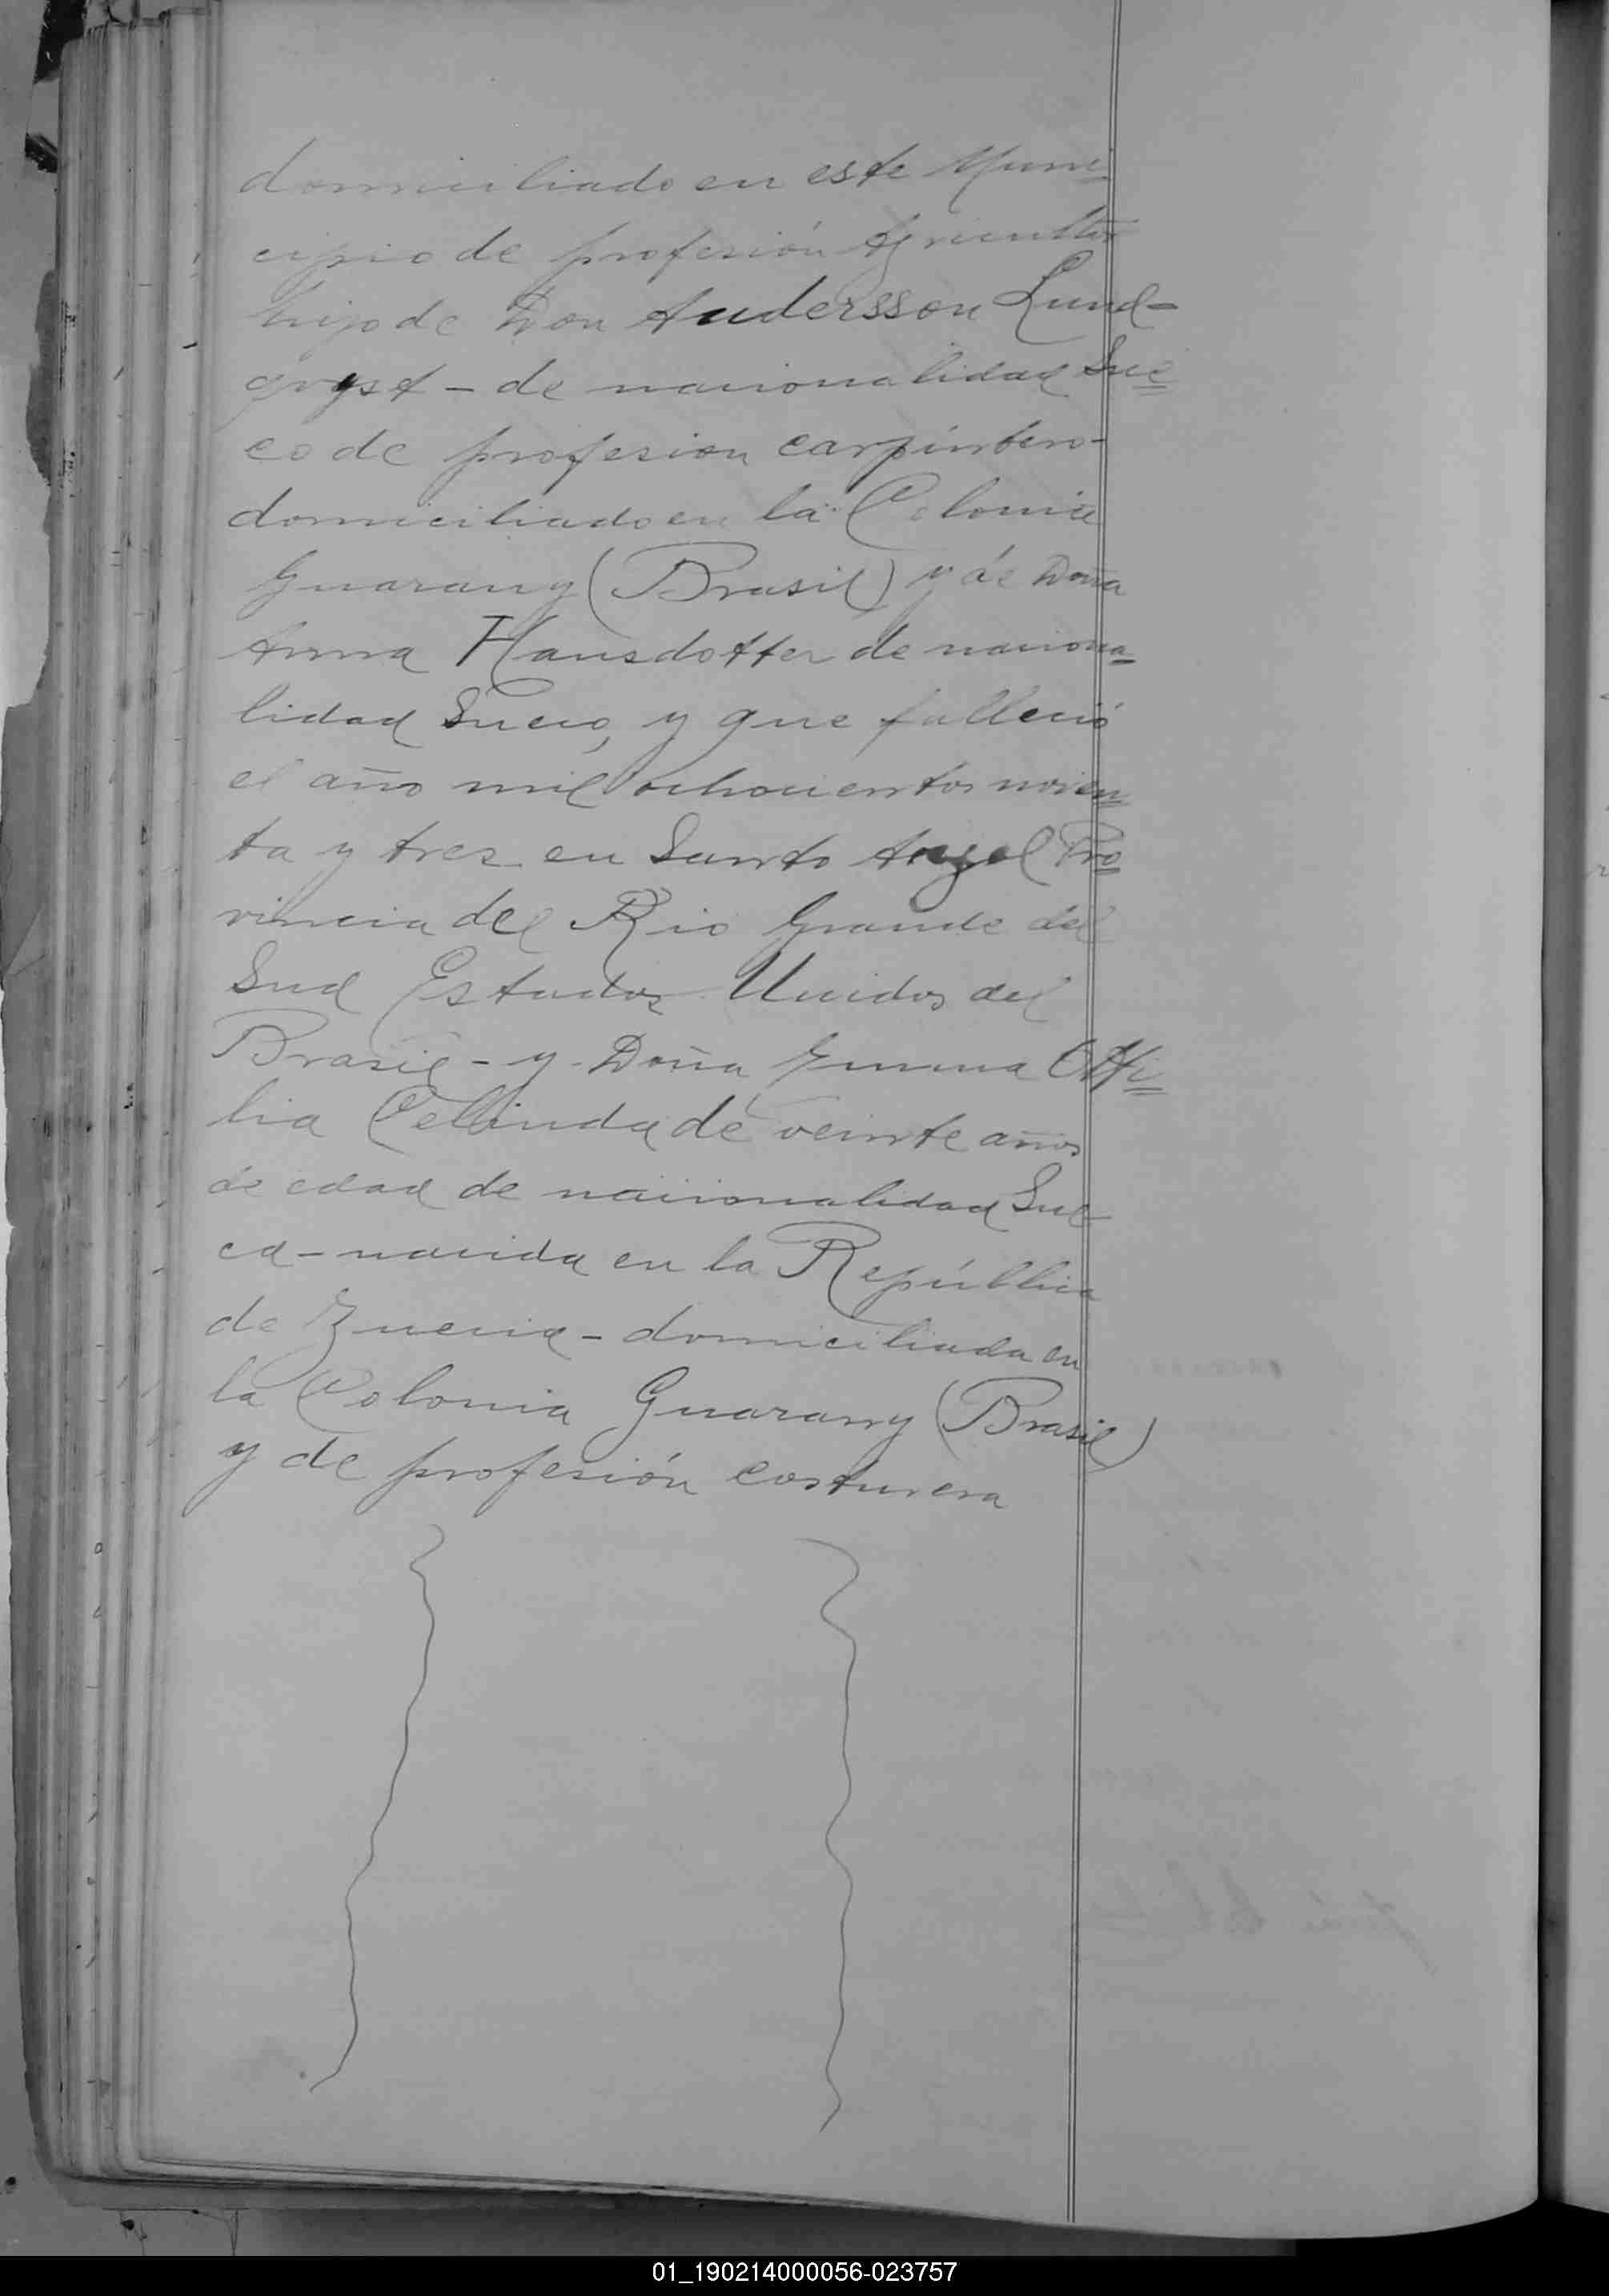 domiciliado en este Muni=
cipio de profesión Agricultor
hijo de Don Andersson Lund=
qvyst - de nacionalidad Sue=
co de profesion carpintero-
domiciliado en la Colonia
Guarany (Brasil) y de Doña
Anna Hansdotter de naciona=
lidad Sueco, y que falleció
el año mil ochocientos noven=
ta y tres en Santo Angel Pro=
vincia del Rio Grande del
Sud Estados Unidos del
Brasil - y Doña Emma Otti=
lia Cellinda de veinte años
de edad de nacionalidad Sue-
ca - nacida en la República
de Zuecia - domiciliada en
la Colonia Guarany (Brasil)
y de profesión costurera
01_190214000056-023757